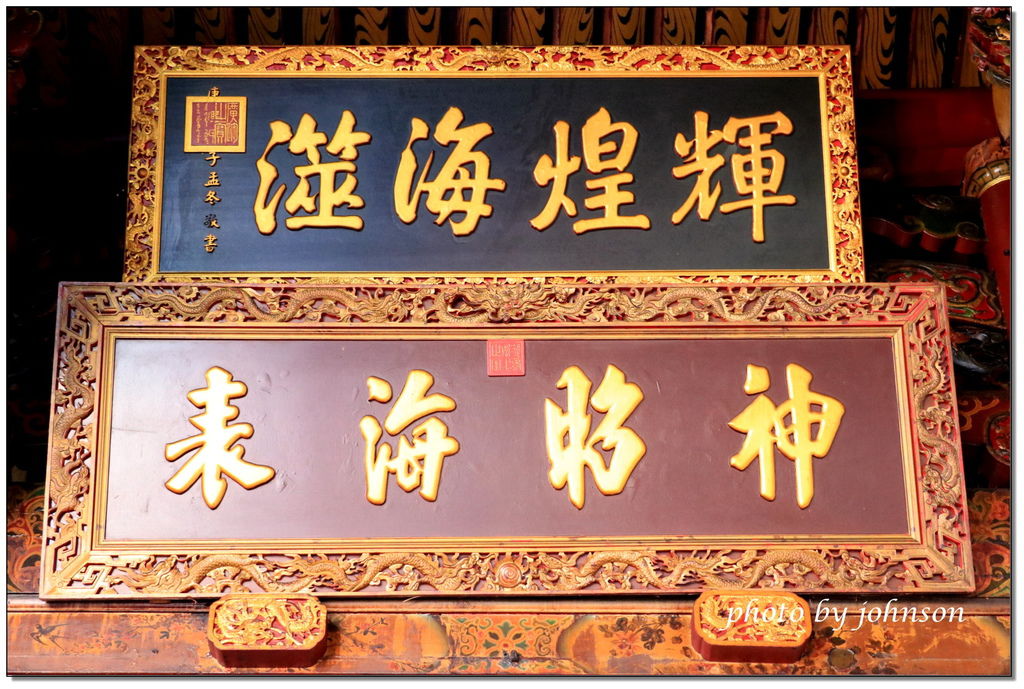 輝煌海澨
庚子孟冬敬書
神昭海表
photo by johnson